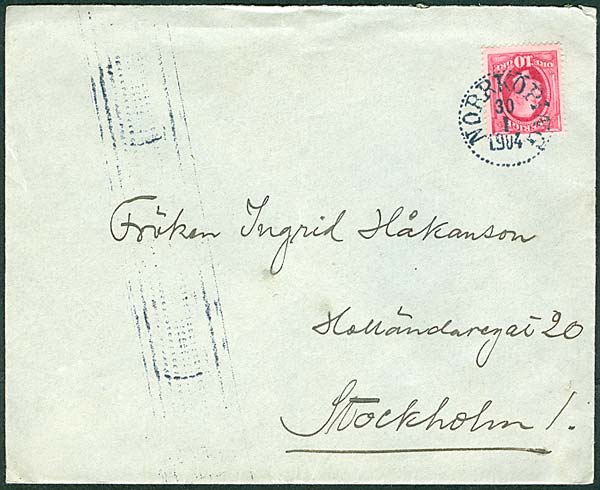 ÖRE 10 ÖRE
NORRKÖPING
30
1
1904
Fröken Ingrid Håkanson
Holländaregat 20
Stockholm 1.